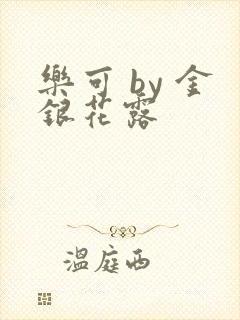 樂可 by 金
銀花露
溫庭西